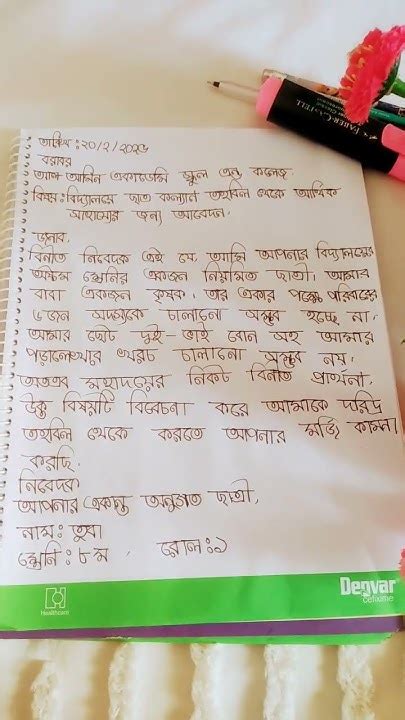 তারিখ: ২০/২/২০২৬
বরাবর
আল-আমিন একাডেমি স্কুল এন্ড কলেজ,
বিষয়: বিদ্যালয়ে ছাত্র কল্যাণ তহবিল থেকে আর্থিক
সাহায্যের জন্য আবেদন,
জনাব,
বিনীত নিবেদক এই যে, আমি আপনার বিদ্যালয়ের
অষ্টম শ্রেনির একজন নিয়মিত ছাত্রী, আমার
বাবা একজন কৃষক, তার একার পক্ষে পরিবারের
৬জন সদস্যকে চালানো সম্ভব হচ্ছে না,
আমার ছোট দুই-ভাই বোন সহ আমার
পড়ালেখার খরচ চালানো সম্ভব নয়,
অতএব মহাদয়ের নিকট বিনীত প্রার্থনা,
উক্ত বিষয়টি বিবেচনা করে আমাকে দরিদ্র
তহবিল থেকে করতে আপনার মর্জি কামনা
করছি,
নিবেদক
আপনার একান্ত অনুগত ছাত্রী,
নাম: তুবা
শ্রেনি: ৮ম, রোল: ১
Healthcare
Denvar
cefixime
FABER-CASTELL